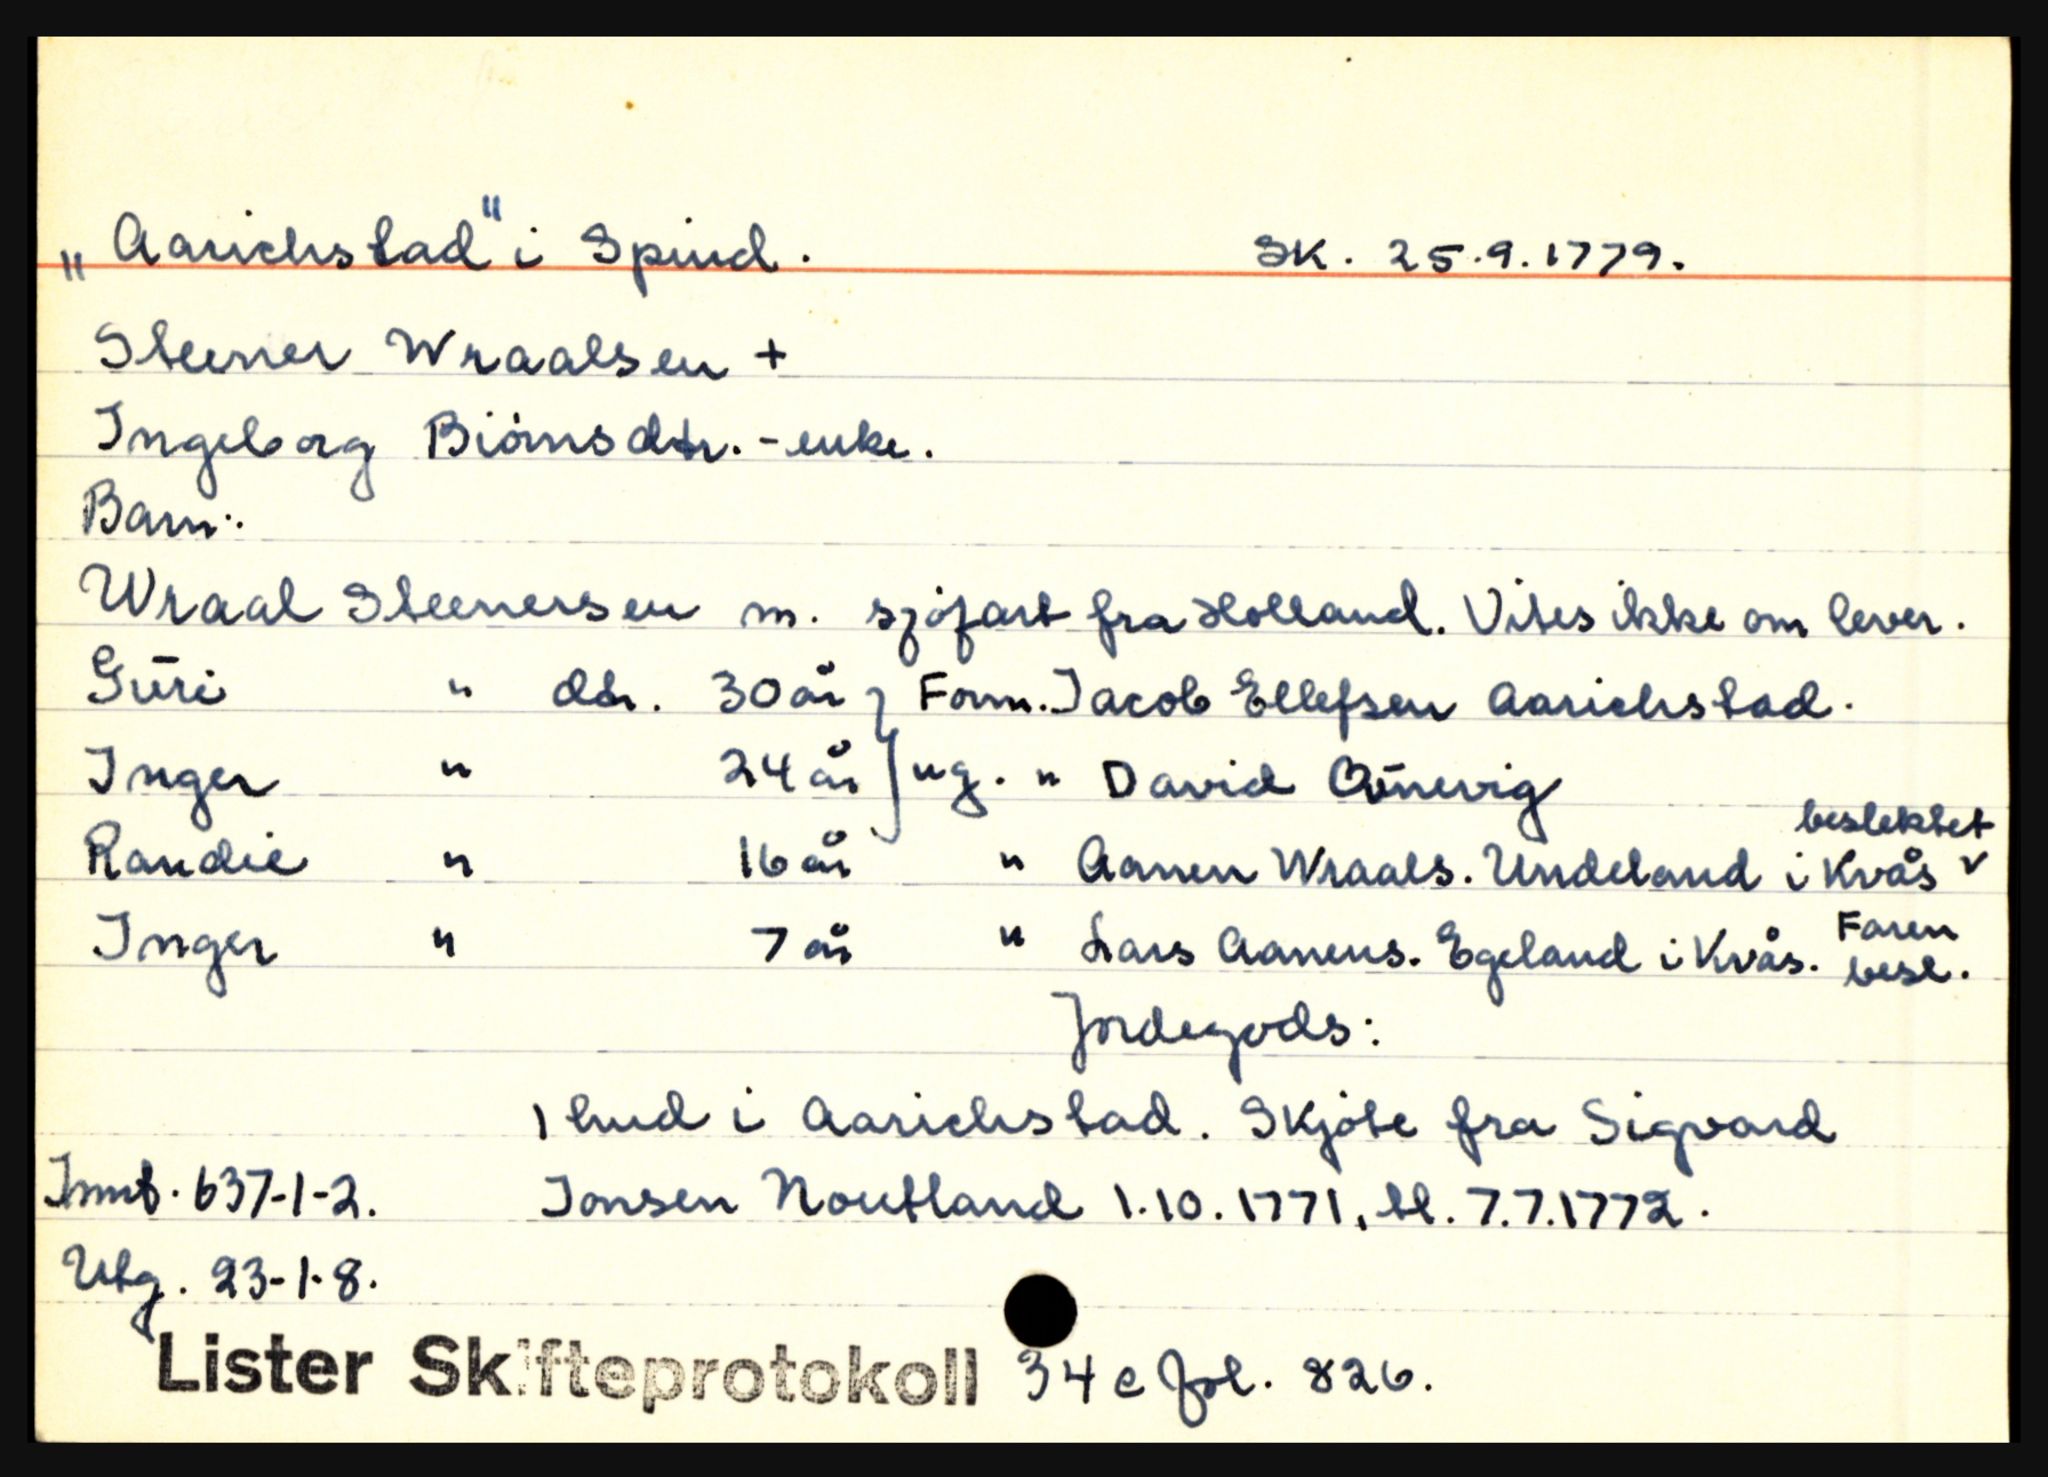 „Aarichstad" i Spind. SK. 25.9.1779.
Steener Wraalsen +
Ingeborg Biörnsdtr. - enke.
Barn:
Wraal Steenersen m. sjöfart fra Holland. Vites ikke om lever.
Gūri " dtr. 30 år } Form. Jacob Ellefsen Aarichstad.
Inger " 24 år } ug. " David Öūnevig
beslektet
Randie " 16 år " Aanen Wraals. Undeland i Kvås v
Inger " 7 år " Lars Aanens. Egeland i Kvås. Faren besl.
Jordegods:
1 hud i Aarichstad. Skjöte fra Sigvard
Innt. 637-1-2. Jonsen Noutland 1.10.1771, tl. 7.7.1772.
Utg. 23-1-8.
Lister Skifteprotokoll 34 c fol. 826.